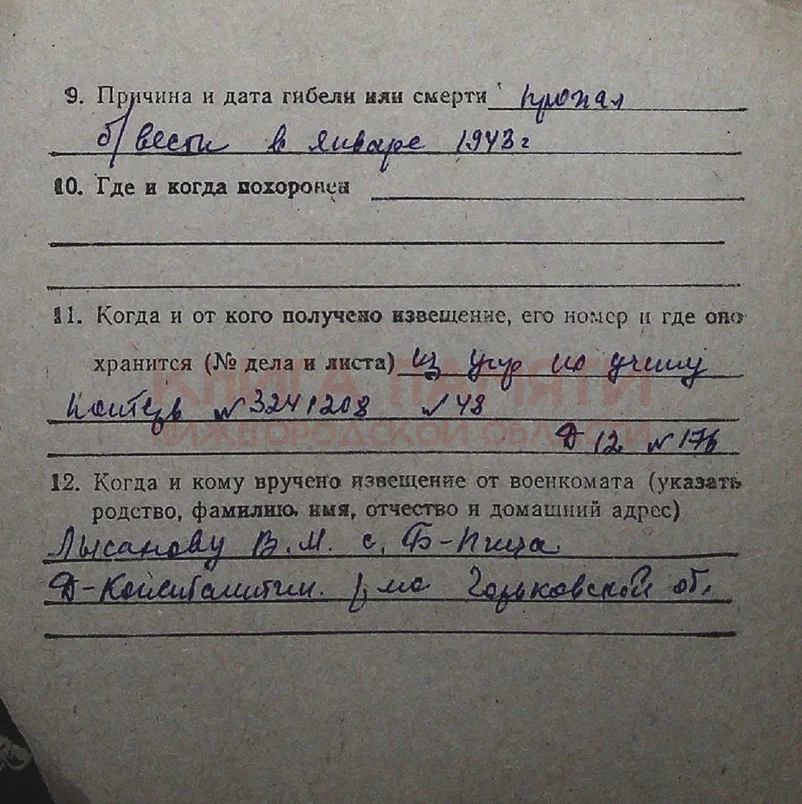 9. Причина и дата гибели или смерти пропал
б/вести в январе 1943 г
10. Где и когда похоронен
11. Когда и от кого получено извещение, его номер и где оно
хранится (№ дела и листа) из упр по учету
потерь №3241208 №48
КНИГА ПАМЯТИ
НИЖЕГОРОДСКОЙ ОБЛАСТИ
Д 12 №176
12. Когда и кому вручено извещение от военкомата (указать
родство, фамилию, имя, отчество и домашний адрес)
Лысанову В.М. с. Б-Пица
Д-Константин. р-на Горьковской об.